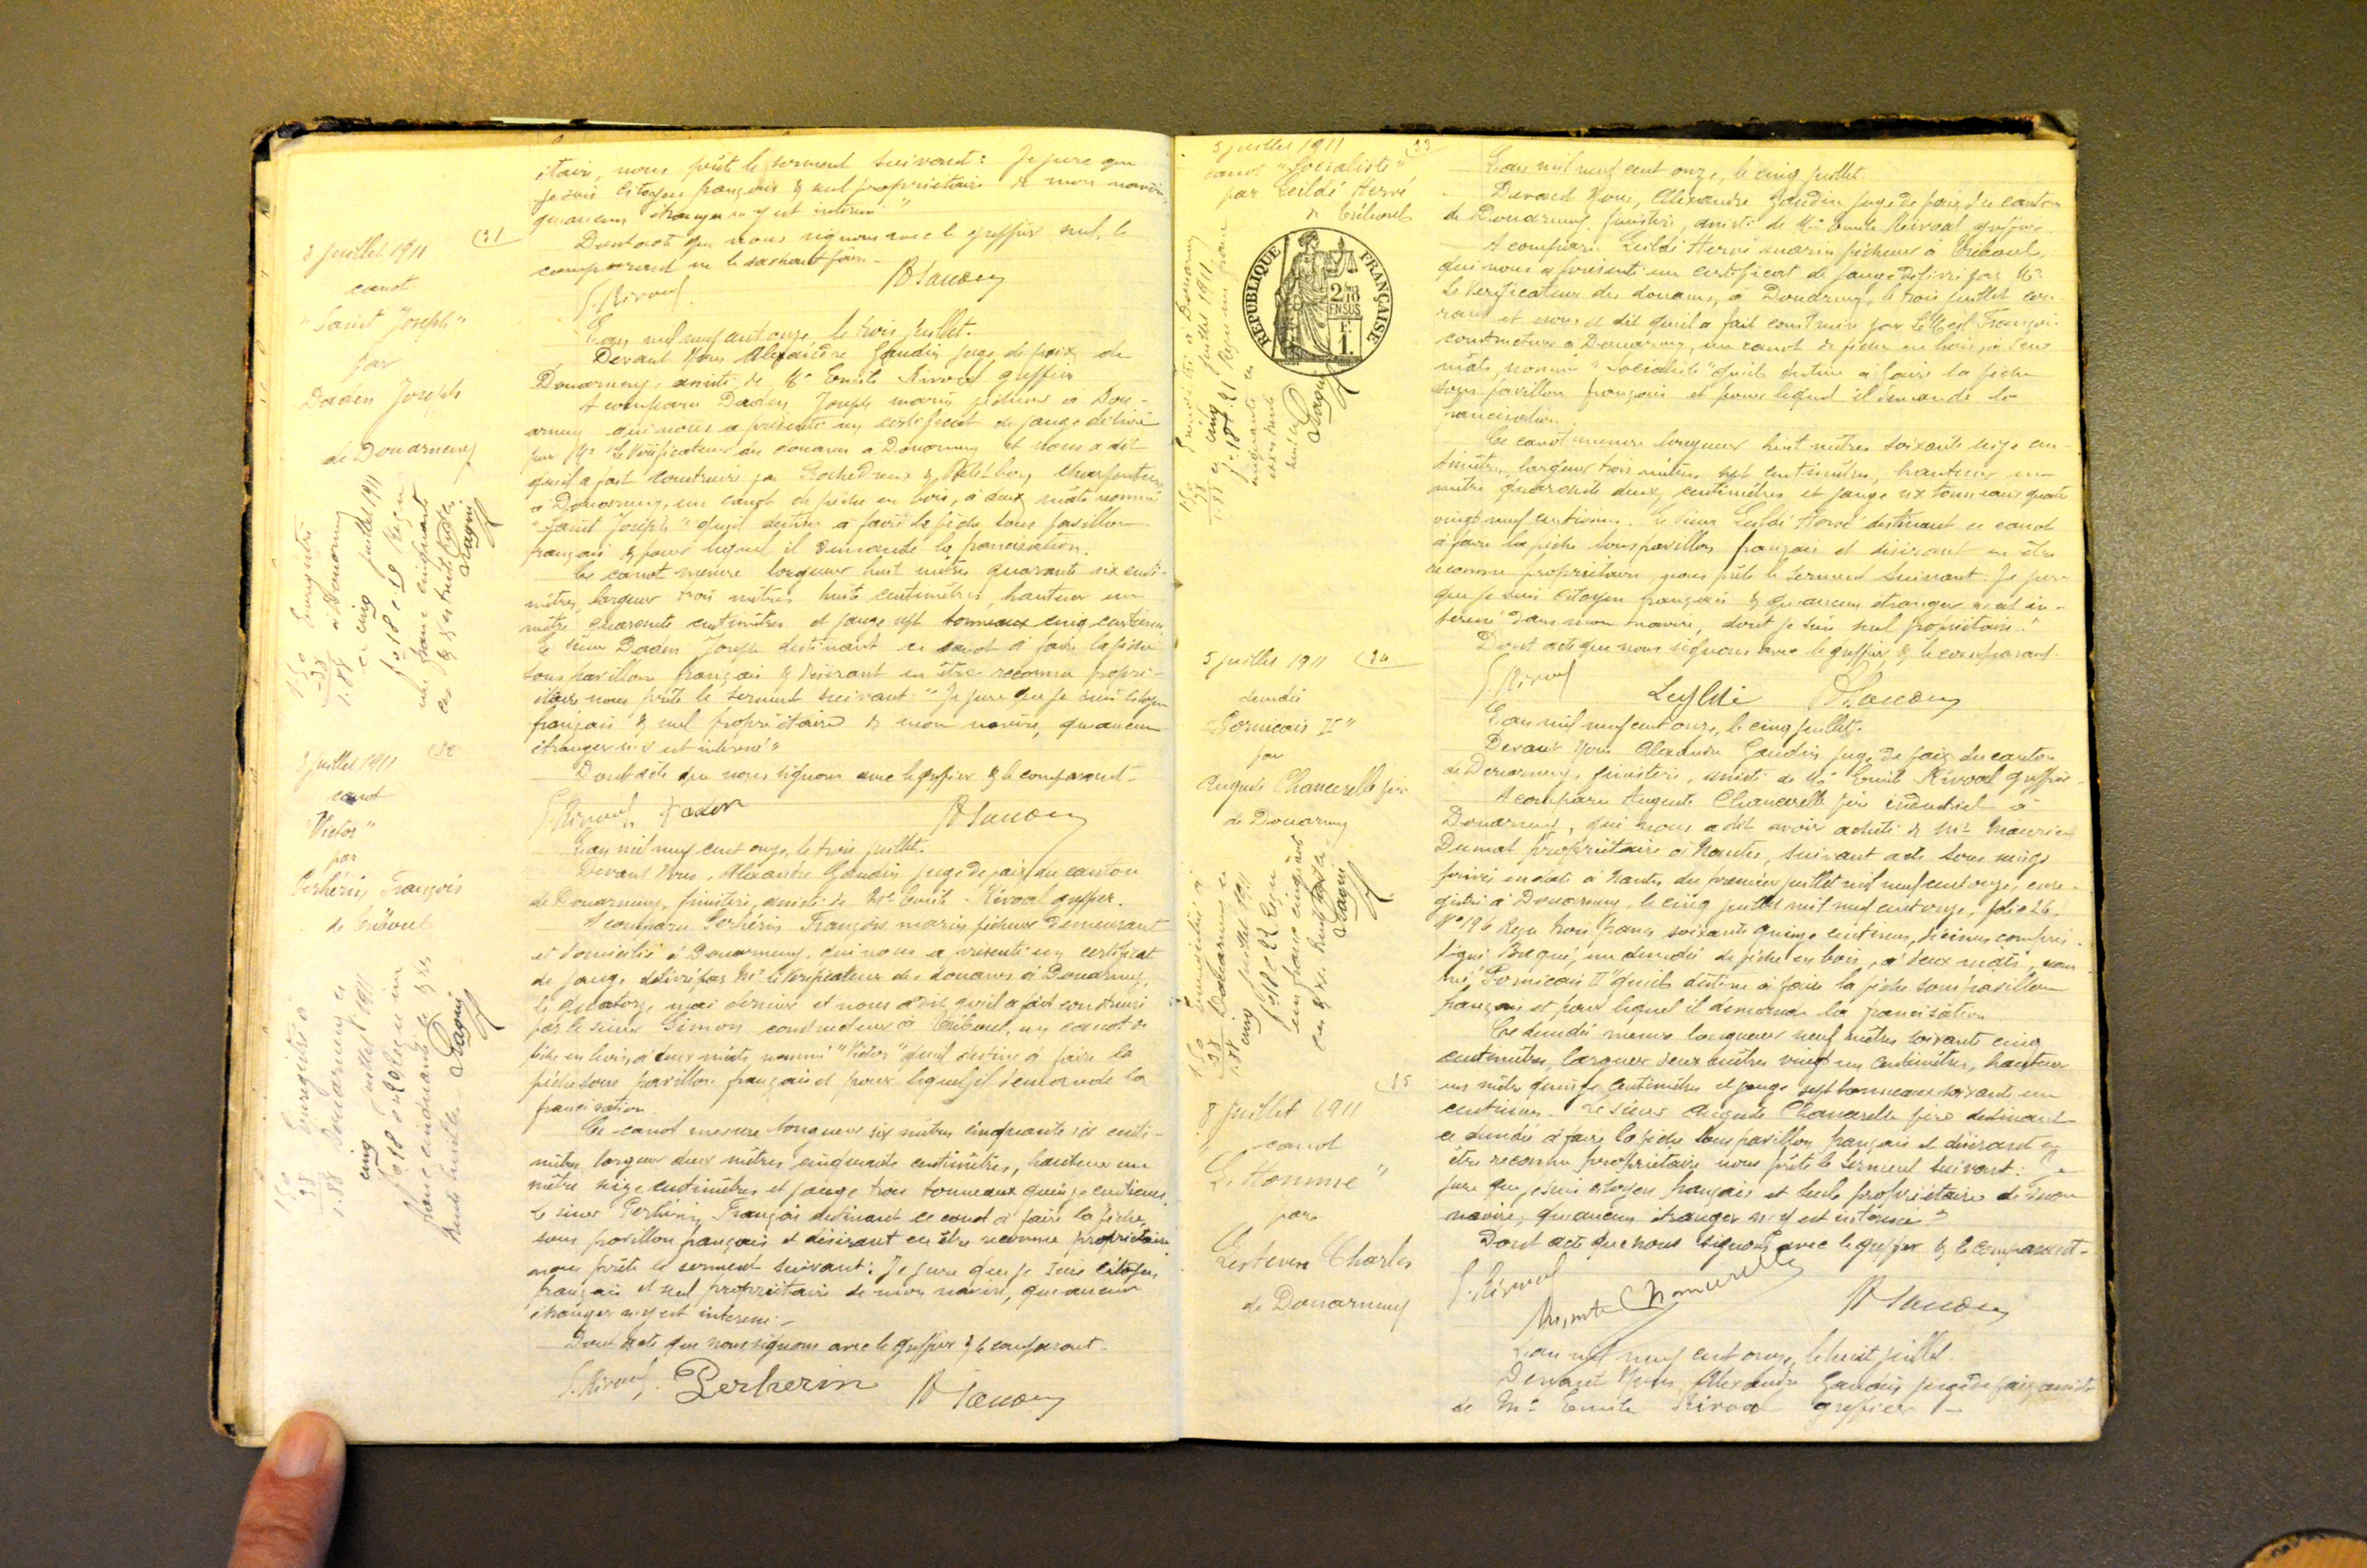 itaire, nous prête le serment suivant: Je jure que
je suis citoyen français & seul propriétaire de mon navire
qu'aucun étranger n'y est intéressé"
Dont acte que nous signons avec le greffier seul, le
comparant ne le sachant faire.
3 juillet 1911
(31
canot
"Saint Joseph"
par
Daden Joseph
de Douarnenez
Enregistré
à Douarnenez
ce cinq juillet 1911
f° 18 c 19 Reçu
un franc cinquante
1.50
38
1.88
L'an mil neuf cent onze le trois juillet.
Devant Nous Alexandre Gaudin juge de paix de
Douarnenez, assisté de Me Emile Rivoal greffier
A comparu Daden Joseph marin pêcheur à Dou-
arnenez qui nous a présenté un certificat de jauge délivré
par Mr le Vérificateur des douanes à Douarnenez et nous a dit
qu'il a fait construire par & charpentiers
à Douarnenez, un canot de pêche en bois, à deux mâts nommé
"Saint Joseph" qu'il destine à faire la pêche sous pavillon
français & pour lequel il demande la francisation.
Ce canot mesure longueur huit mètres quarante six centi-
mètres, largeur trois mètres huit centimètres, hauteur un
mètre quarante centimètres et jauge sept tonneaux cinq centièmes
Le sieur Daden Joseph destinant ce canot à faire la pêche
sous pavillon français & désirant en être reconnu propri-
étaire nous prête le serment suivant: "Je jure que je suis citoyen
français & seul propriétaire de mon navire, qu'aucun
étranger n'y est intéressé"
Dont acte que nous signons avec le greffier & le comparant.
3 juillet 1911
(32
canot
"Victor"
par
Perhérin François
de Tréboul
Enregistré à
Douarnenez ce
cinq juillet 1911
f° 18 c 20 Reçu un
franc cinquante
1.50
38
1.88
L'an mil neuf cent onze, le trois juillet.
Devant Nous, Alexandre Gaudin juge de paix du canton
de Douarnenez, finistère, assisté de Me Emile Rivoal greffier.
A comparu Perhérin François marin pêcheur demeurant
et domicilié à Douarnenez, qui nous a présenté un certificat
de jauge délivré par Mr le Vérificateur des douanes à Douarnenez,
le quatorze mai dernier et nous a dit qu'il a fait construire
par le sieur Simon constructeur à Tréboul, un canot de
pêche en bois, à deux mâts nommé "Victor" qu'il destine à faire la
pêche sous pavillon français et pour lequel il demande la
francisation.
Ce canot mesure longueur six mètres cinquante six centi-
mètres, largeur deux mètres cinquante centimètres, hauteur un
mètre seize centimètres et jauge trois tonneaux quinze centièmes
Le sieur Perhérin François destinant ce canot à faire la pêche
sous pavillon français et désirant en être reconnu propriétaire
nous prête le serment suivant: Je jure que je suis citoyen
français et seul propriétaire de mon navire, qu'aucun
étranger n'y est intéressé.
Dont acte que nous signons avec le greffier & le comparant.
Perherin
5 juillet 1911
(33
canot "Socialiste"
par Leildé Hervé
de Tréboul
RÉPUBLIQUE FRANÇAISE
2/10 EN SUS
1 F.
Enregistré à Douarnenez
ce cinq juillet 1911
f° 18 c 21 Reçu un franc
cinquante
1.50
38
1.88
L'an mil neuf cent onze, le cinq juillet.
Devant Nous, Alexandre Gaudin juge de paix du canton
de Douarnenez, finistère, assisté de Me Emile Rivoal greffier.
A comparu Leildé Hervé marin pêcheur à Tréboul,
qui nous a présenté un certificat de jauge délivré par Mr
Le Vérificateur des douanes, à Douarnenez, le trois juillet cou-
rant et nous a dit qu'il a fait construire par François
constructeur à Douarnenez, un canot de pêche en bois, à deux
mâts, nommé "Socialiste" qu'il destine à faire la pêche
sous pavillon français et pour lequel il demande la
francisation.
Ce canot mesure longueur huit mètres soixante seize cen-
timètres, largeur trois mètres sept centimètres, hauteur un
mètre quarante deux centimètres et jauge six tonneaux quatre
vingt neuf centièmes. Le sieur Leildé Hervé destinant ce canot
à faire la pêche sous pavillon français et désirant en être
reconnu propriétaire, nous prête le serment suivant: Je jure
que je suis citoyen français & qu'aucun étranger n'est in-
téressé dans mon navire, dont je suis seul propriétaire."
Dont acte que nous signons avec le greffier & le comparant.
5 juillet 1911
(34
dundée
"Pornicais II"
par
Auguste Chancerelle père
de Douarnenez
Enregistré à
Douarnenez ce
cinq juillet 1911
f° 18 c 22 Reçu
un franc cinquante
1.50
38
1.88
L'an mil neuf cent onze, le cinq juillet.
Devant Nous Alexandre Gaudin juge de paix du canton
de Douarnenez, finistère, assisté de Me Emile Rivoal greffier
A comparu Auguste Chancerelle père industriel à
Douarnenez, qui nous a dit avoir acheté de Mr Maurice
Dumat propriétaire à Nantes, suivant acte sous seings
privés en date à Nantes du premier juillet mil neuf cent onze, enre-
gistré à Douarnenez, le cinq juillet mil neuf cent onze, folio 26.
N° 196 Reçu trois francs soixante quinze centimes, décimes compris.
signé un dundée de pêche en bois, à deux mâts, nom-
mé "Pornicais II" qu'il destine à faire la pêche sous pavillon
français et pour lequel il demande la francisation
Ce dundée mesure longueur neuf mètres soixante cinq
centimètres, largeur deux mètres vingt un centimètres, hauteur
un mètre quinze centimètres et jauge sept tonneaux soixante un
centièmes. Le sieur Auguste Chancerelle père destinant
ce dundée à faire la pêche sous pavillon français et désirant en
être reconnu propriétaire nous prête le serment suivant: Je
jure que je suis citoyen français et seul propriétaire de mon
navire, qu'aucun étranger n'y est intéressé"
Dont acte que nous signons avec le greffier & le comparant.
8 juillet 1911
(35
canot
"L'Homme"
par
Charles
de Douarnenez
L'an mil neuf cent onze, le huit juillet.
Devant Nous Alexandre Gaudin juge de paix assisté
de Me Emile Rivoal greffier